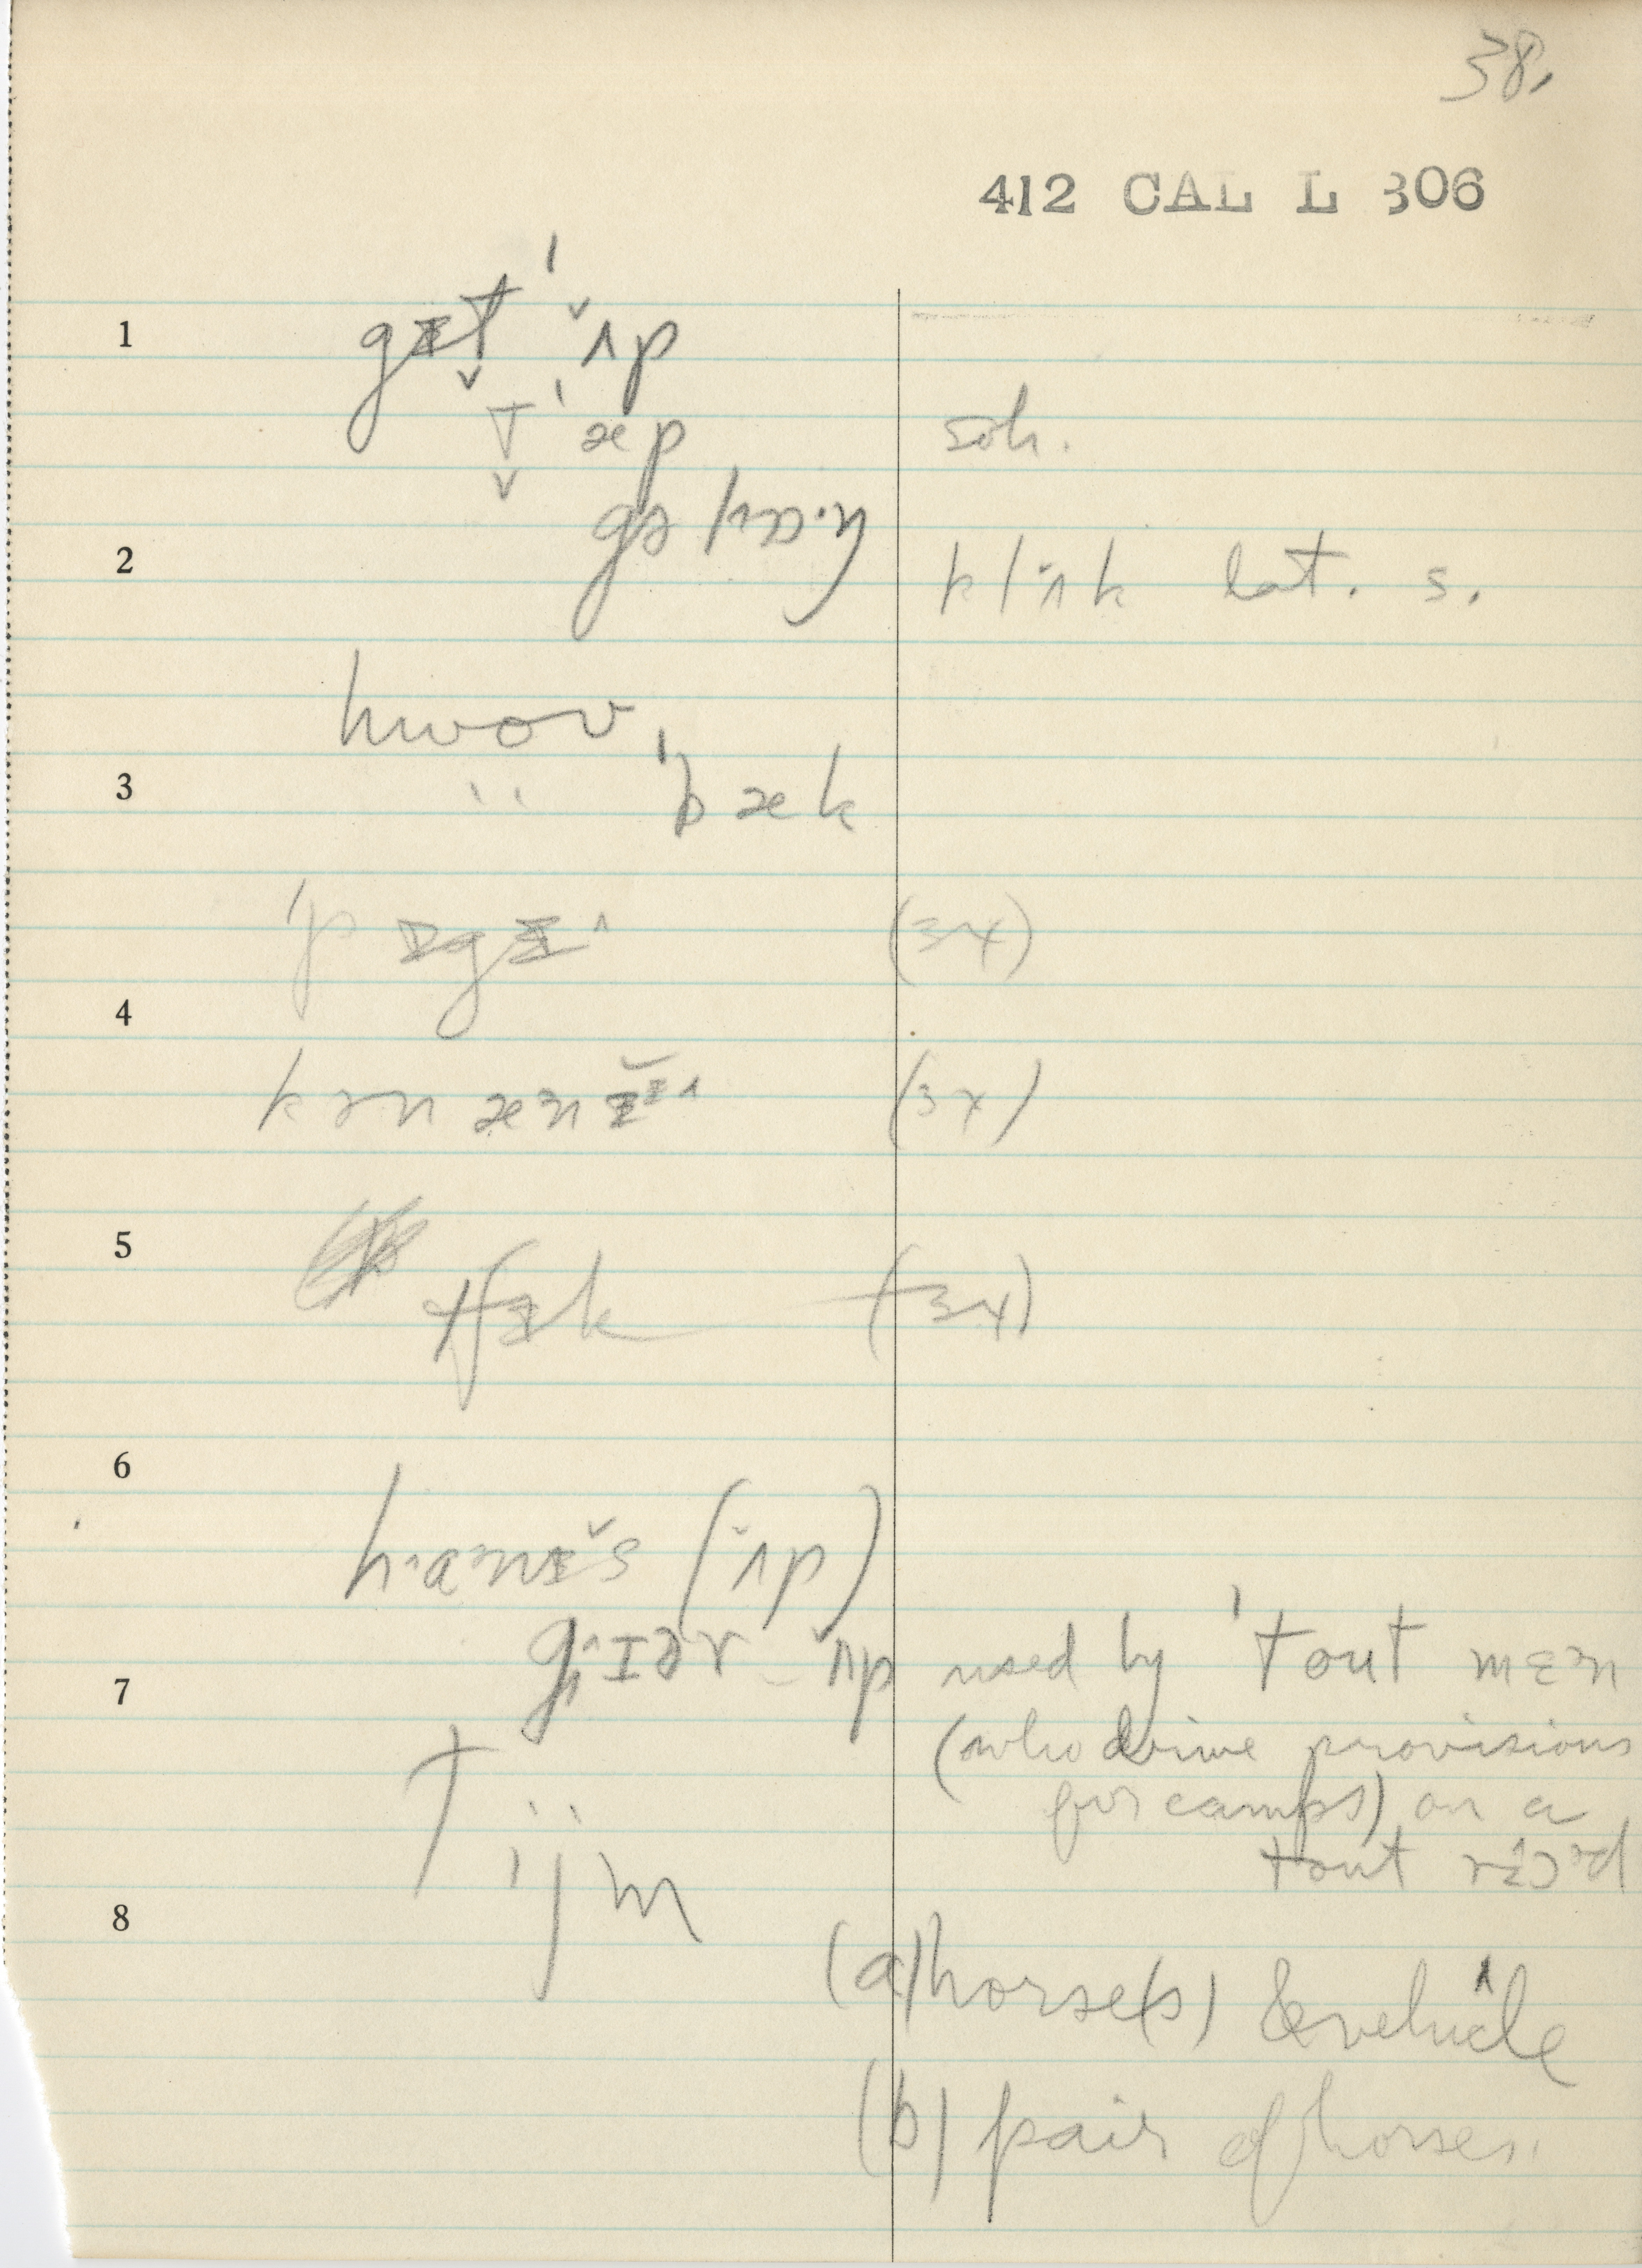 38.
412 CAL L 306
1
gɪt̬ ˈʌ̌p
t̬ ˈæp
soh.
gə lɑ·ŋ
2
klɪ̌ʌk lat. s.
hwov,
3
" ˈbæk
ˈpɪgɪ^ (3x)
4
kənænɪ̆ɪ^ (3x)
5
tʃɪk (3x)
6
h·anɪ̌s (ʌ̌p)
gɪ^ɪər ʌ̌p used by ˈtout mɛn
7
(who drive provisions
for camps) on a
tout
tijm
8
(a) horse(s) & vehicle
(b) pair of horses.